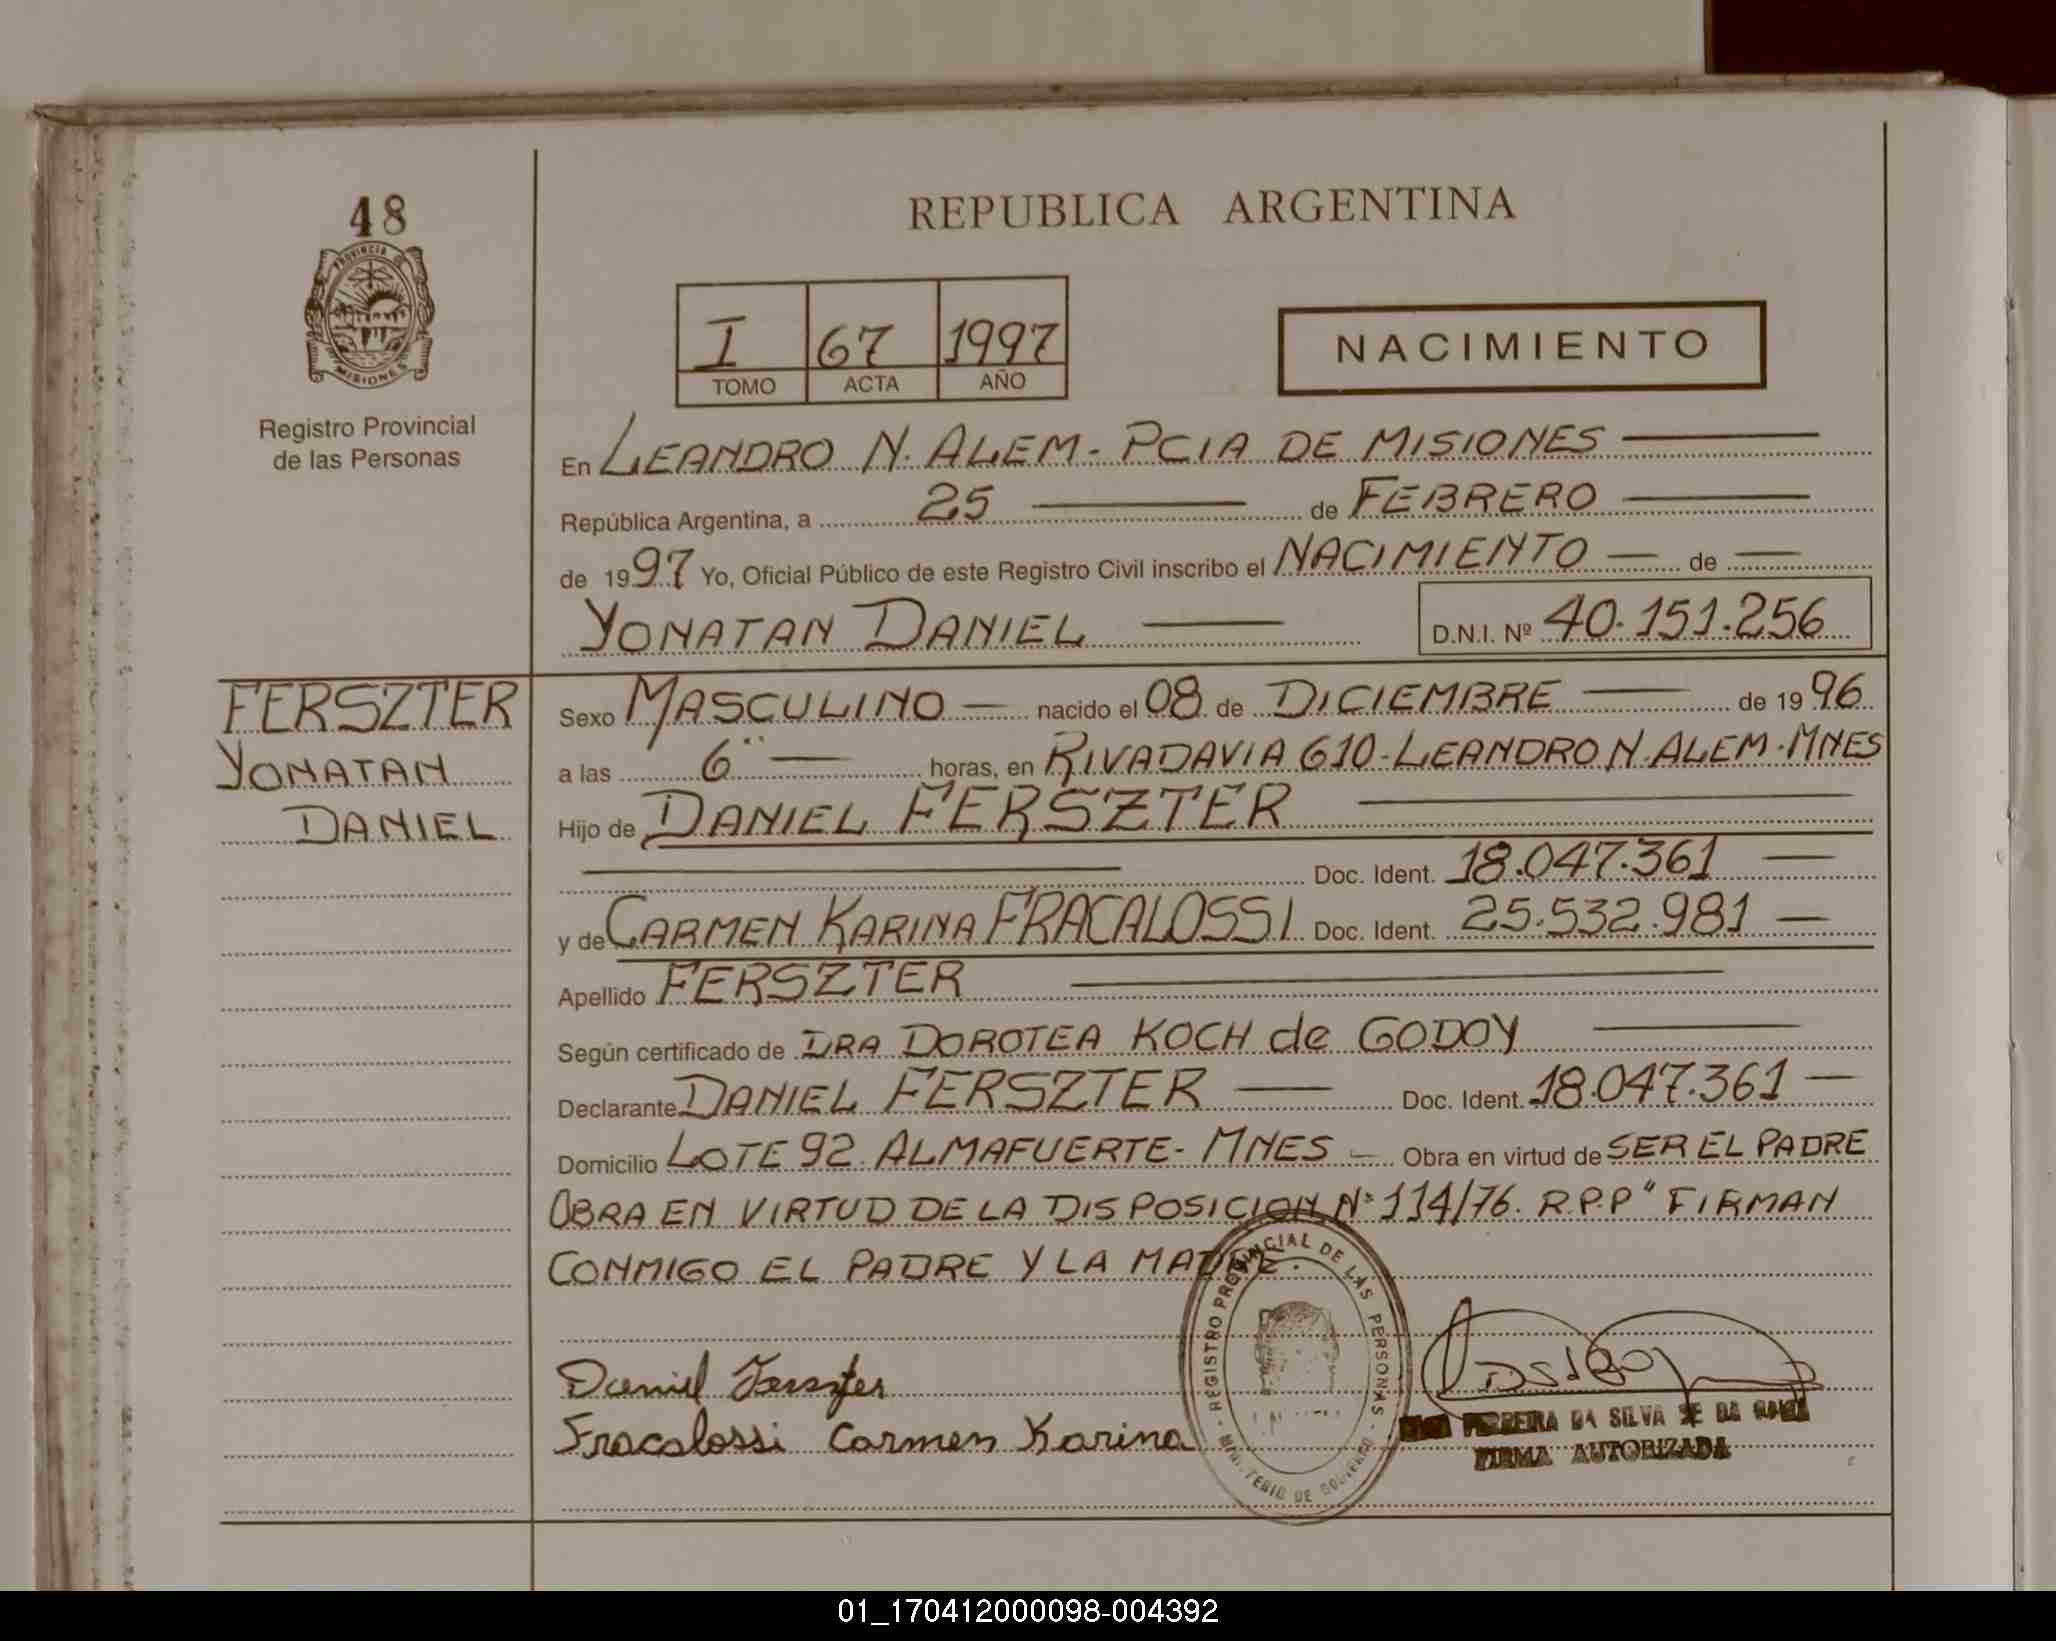 48
PROVINCIA DE
MISIONES
Registro Provincial
de las Personas
REPUBLICA ARGENTINA
I 67 1997
TOMO ACTA AÑO
NACIMIENTO
En LEANDRO N. ALEM - PCIA DE MISIONES
República Argentina, a 25 de FEBRERO
de 1997 Yo, Oficial Público de este Registro Civil inscribo el NACIMIENTO de
YONATAN DANIEL D.N.I. Nº 40.151.256
FERSZTER
YONATAN
DANIEL
Sexo MASCULINO nacido el 08 de DICIEMBRE de 1996
a las 6 horas, en RIVADAVIA 610 - LEANDRO N. ALEM - MNES
Hijo de DANIEL FERSZTER
Doc. Ident. 18.047.361
y de CARMEN KARINA FRACALOSSI Doc. Ident. 25.532.981
Apellido FERSZTER
Según certificado de DRA DOROTEA KOCH de GODOY
Declarante DANIEL FERSZTER Doc. Ident. 18.047.361
Domicilio LOTE 92 ALMAFUERTE - MNES Obra en virtud de SER EL PADRE
OBRA EN VIRTUD DE LA DISPOSICION Nº 114/76. R.P.P" FIRMAN
CONMIGO EL PADRE Y LA MADRE.
REGISTRO PROVINCIAL DE LAS PERSONAS
MINISTERIO DE GOBIERNO
Daniel Ferszter
Fracalossi Carmen Karina
FERREIRA DA SILVA DE DA
FIRMA AUTORIZADA
01_170412000098-004392